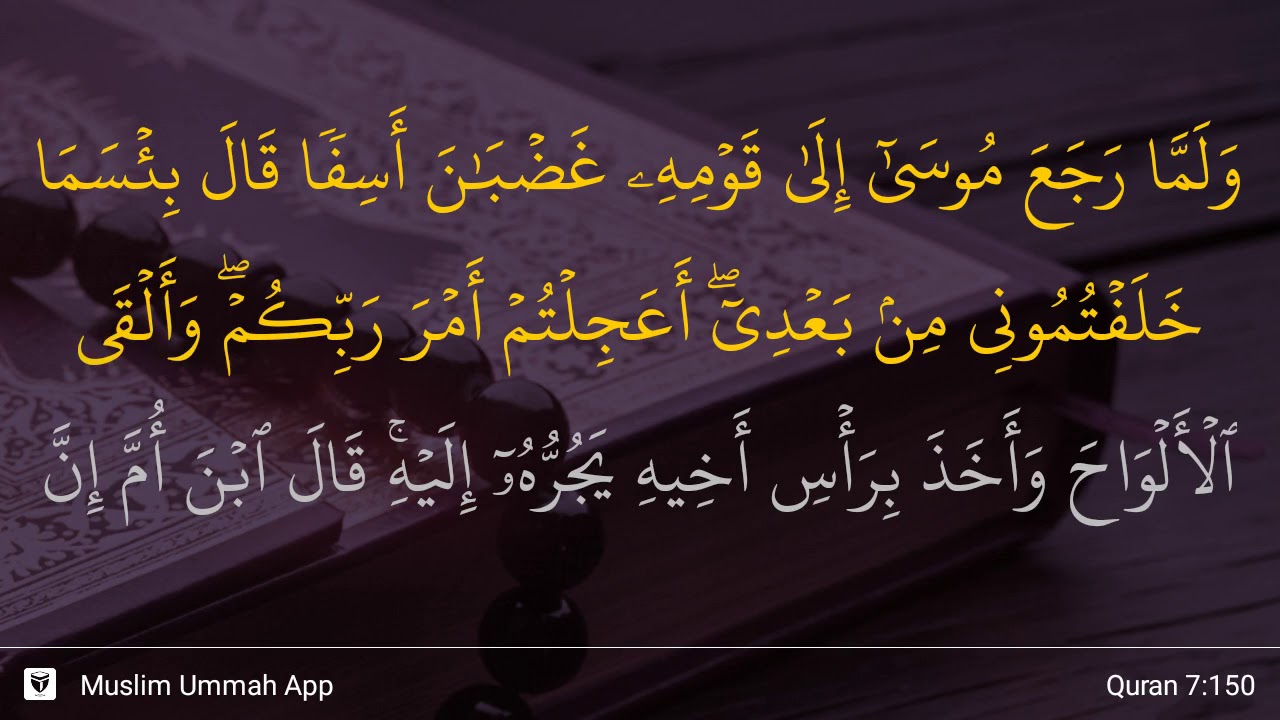 وَلَمَّا رَجَعَ مُوسَىٰٓ إِلَىٰ قَوْمِهِۦ غَضْبَـٰنَ أَسِفًا قَالَ بِئْسَمَا
خَلَفْتُمُونِى مِنۢ بَعْدِىٓ ۖ أَعَجِلْتُمْ أَمْرَ رَبِّكُمْ ۖ وَأَلْقَى
ٱلْأَلْوَاحَ وَأَخَذَ بِرَأْسِ أَخِيهِ يَجُرُّهُۥٓ إِلَيْهِ ۚ قَالَ ٱبْنَ أُمَّ إِنَّ
Muslim Ummah App
Quran 7:150